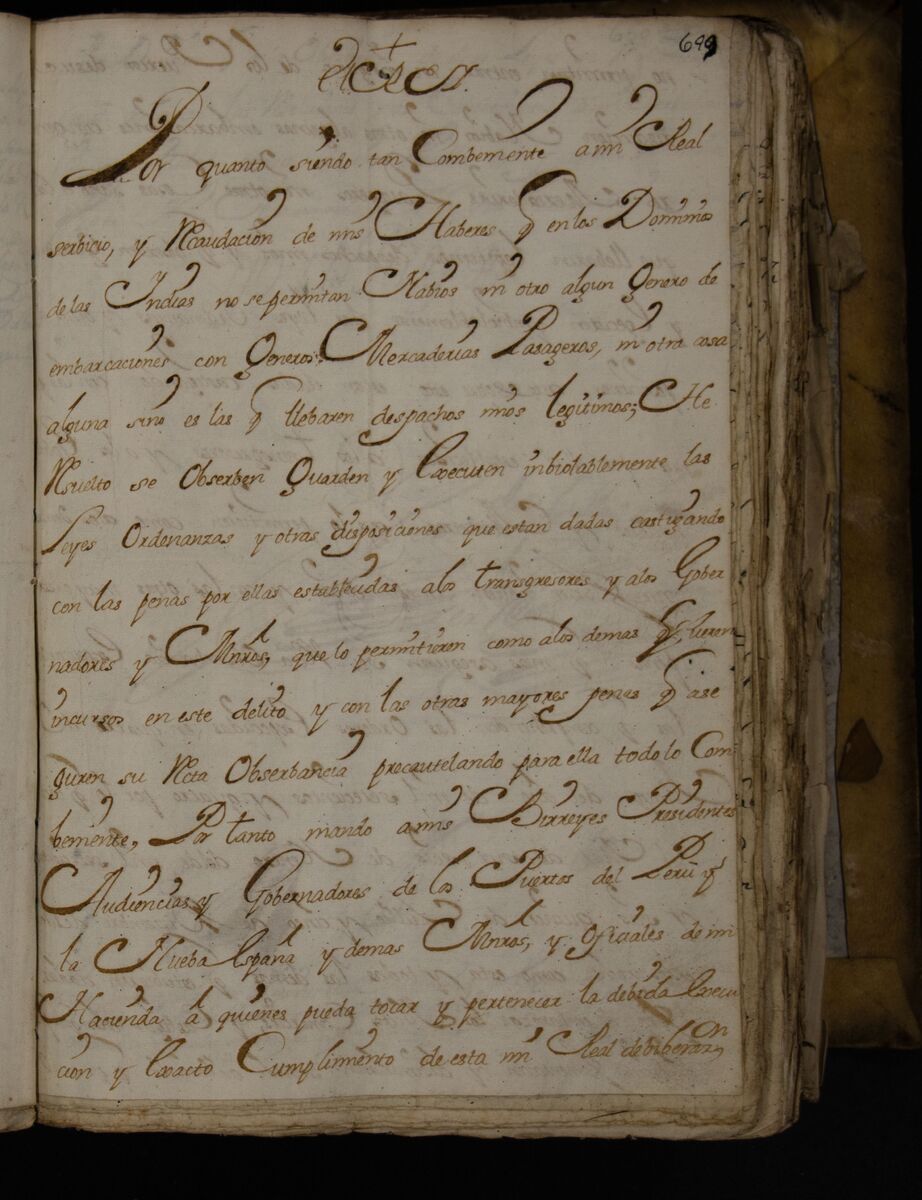 699
El Rey.
Por quanto siendo tan Combeniente a mi Real
serbicio, y Recaudacion de mis Haberes q̃ en los Dominios
de las Yndias no se permitan Nabios ni otro algun Genero de
embarcaciones con Generos, Mercaderias Pasageros, ni otra cosa
alguna sino es las q̃ llebaren despachos mios legitimos; He
Rsuelto se Obserben Guarden y Executen inbiolablemente las
Leyes Ordenanzas y otras disposiciones que estan dadas castigando
con las penas por ellas establecidas a los transgresores y a los Gober
nadores y Mnros, que lo permitieren como a los demas q̃ fueren
incursos en este delito y con las otras mayores penas q̃ ase
guren su Rcta Obserbancia procautelando para ella todo lo Com
beniente, Por tanto mando a mis Birreyes Presidentes
Audiencias y Gobernadores de los Puertos del Perù y
la Nueba España y demas Mnros, y oficiales de mi
Hacienda à quienes pueda tocar y pertenecer la debida Execu
cion y Exacto Cumplimiento de esta mi Real deliberazon